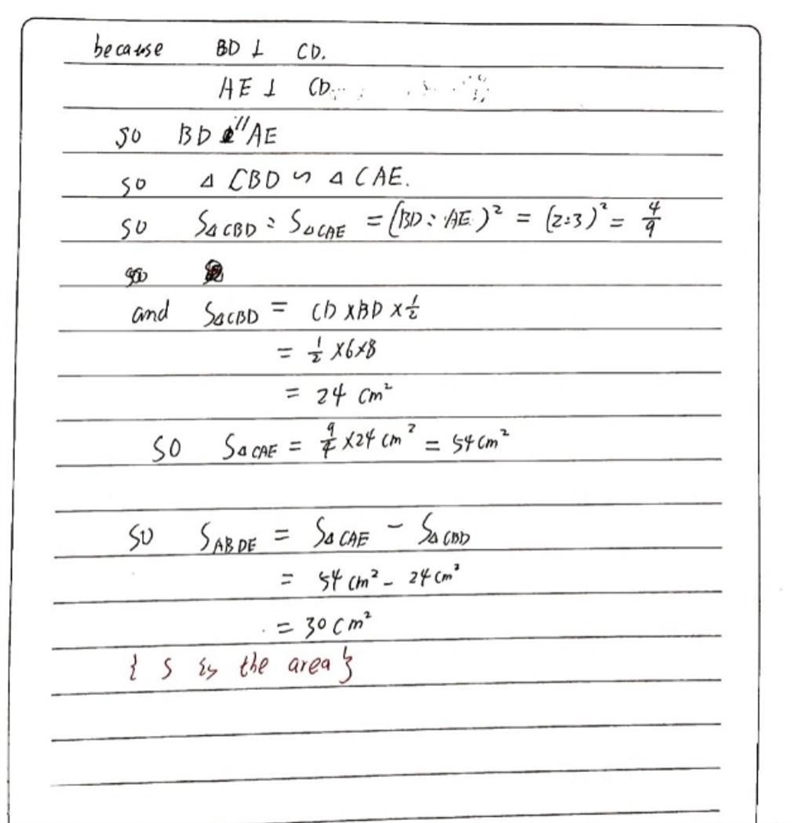 because BD ⊥ CD.
AE ⊥ CD
so BD // AE
so △ CBD ∽ △ CAE.
so S△CBD : S△CAE = (BD : AE)² = (2:3)² = 4/9
and S△CBD = CD × BD × 1/2
= 1/2 × 6 × 8
= 24 cm²
SO S△CAE = 9/4 × 24 cm² = 54 cm²
so SABDE = S△CAE - S△CBD
= 54 cm² - 24 cm²
= 30 cm²
{ S is the area }